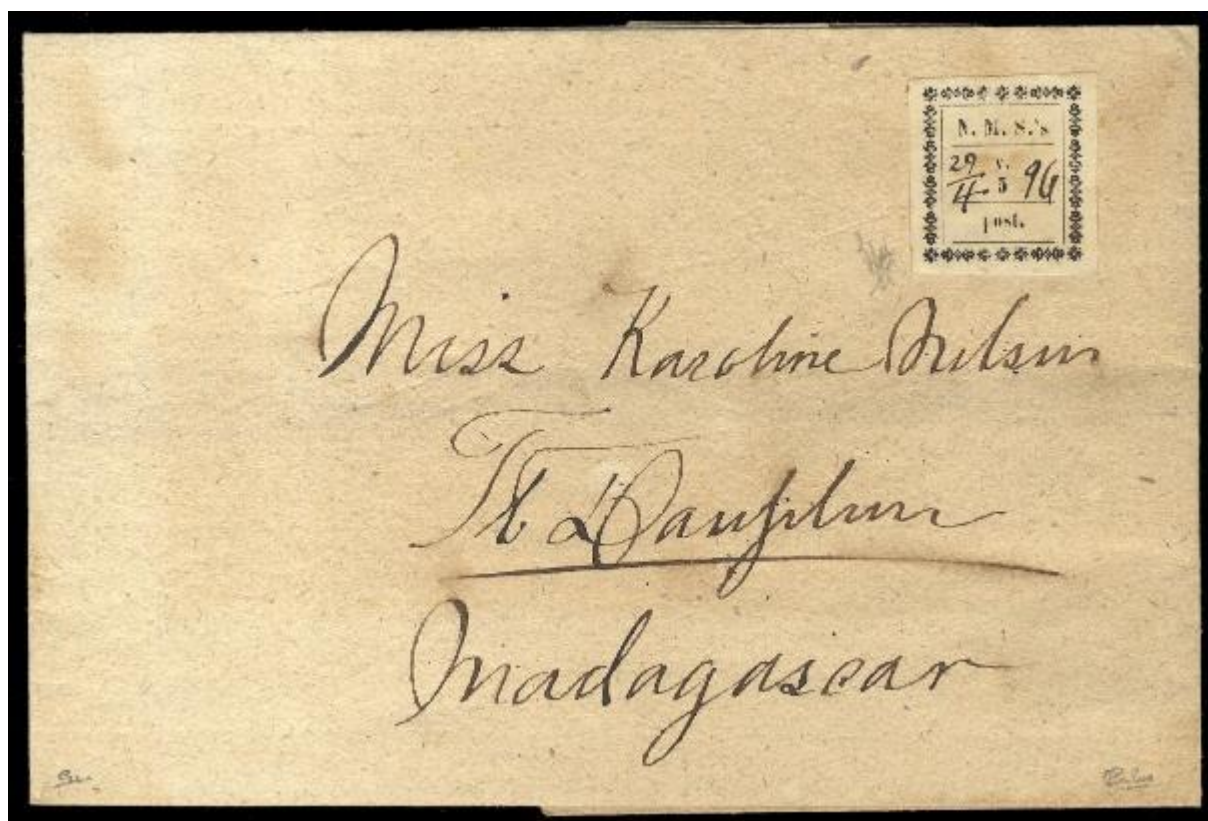 N. M. S.'s
29/4. v. 5 96
post.
Miss Karoline Nilsen
Ft Dauphin
Madagascar